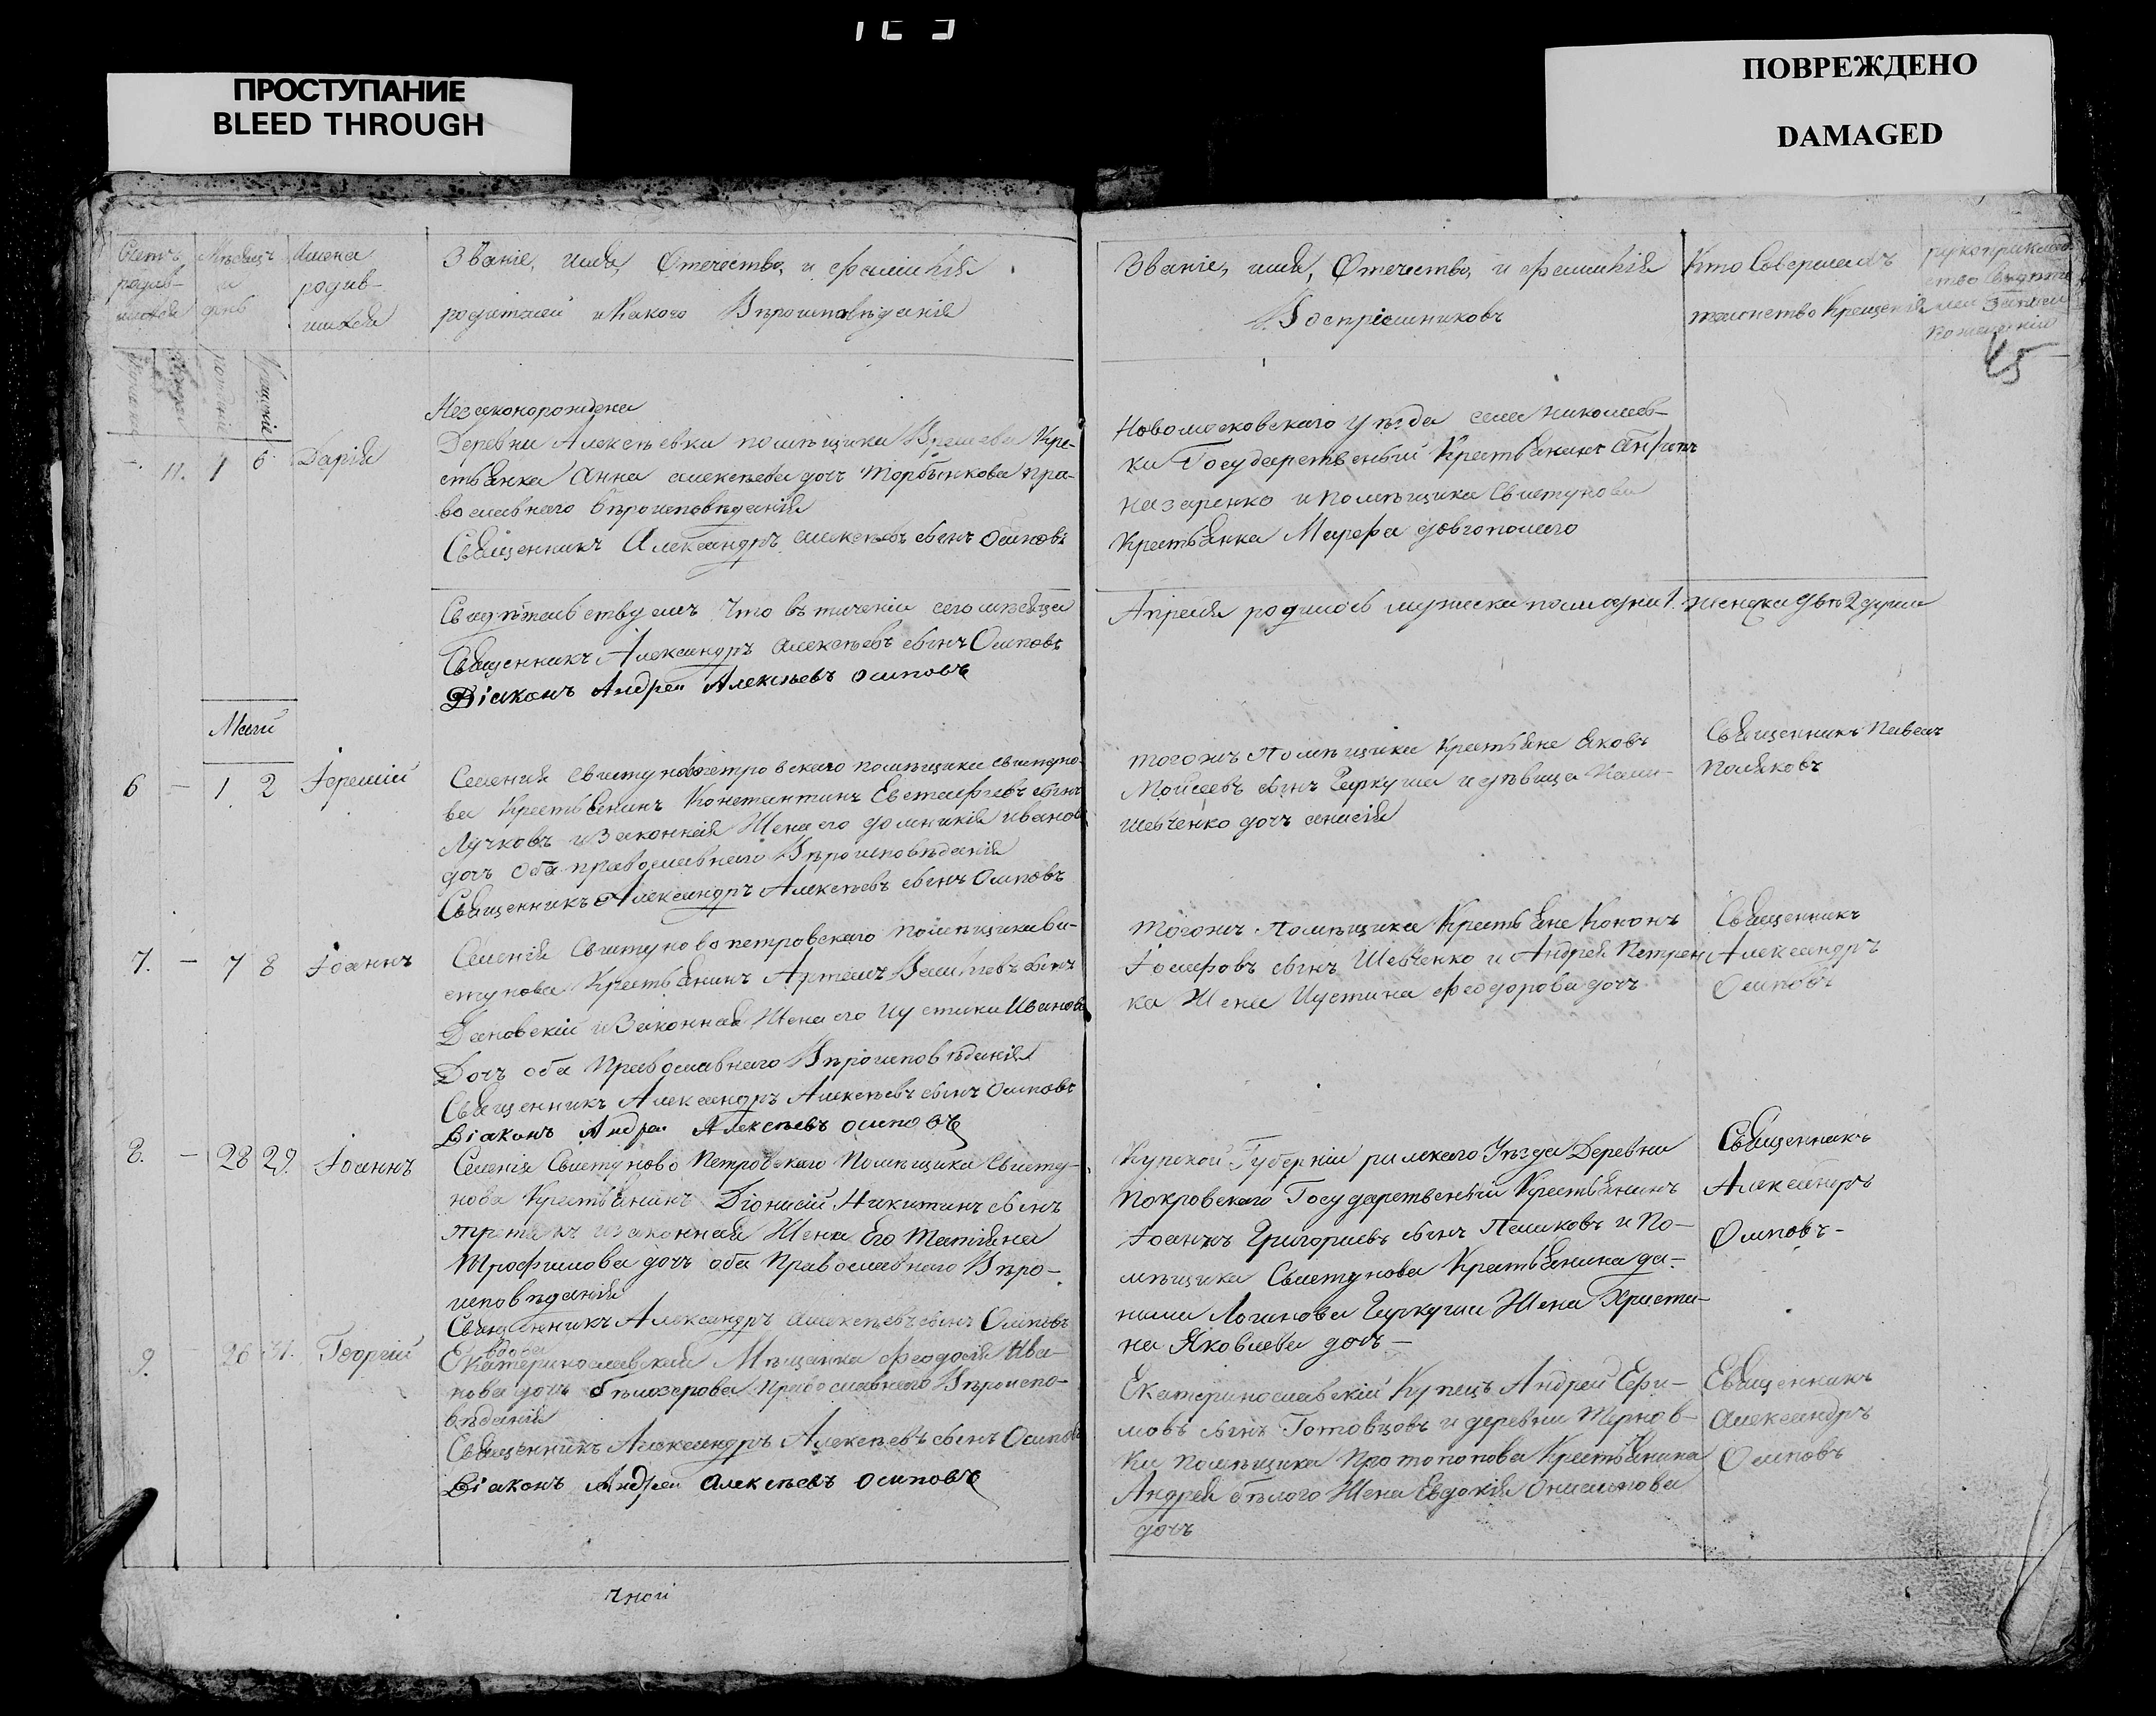 ПРОСТУПАНИЕ
BLEED THROUGH
ПОВРЕЖДЕНО
DAMAGED
Счетъ родив-шихся
Мѣсяцъ и день
Имена родив-шихся
Званіе, имя, Отечество, и фамилія
родителей и Какого Вѣроисповѣданія
Званіе, имя, Отечество, и фамилія
Воспріемниковъ
Кто Совершалъ
таинство Крещенія
рукоприклад-
ство свидѣте
лей записи
по желанію
45
Незаконорождена
- 11. 1 6 Дарія
Деревни Алексѣевки помѣщика Кре-
стьянка Анна алексѣева дочь Православнаго вѣроисповѣданія
Священникъ Александръ алексѣевъ сынъ Осиповъ
Новомосковскаго уѣзда села николаев-
ки Государственый Крестьянинъ Антонъ
назаренко и помѣщика Свистунова
Крестьянка Марфа довгополаго
Свидѣтельствуемъ Что въ теченіи сего мѣсяца
Апреля родилось мужеска пола одна 1. женска двѣ 2 души
Священникъ Александръ алексѣевъ сынъ Осиповъ
Діаконъ Андрей Алексѣевъ осиповъ
Маій
6 - 1. 2 Іеремій
Селенія свистуновопетровскаго помѣщика свистуно-
ва Крестьянинъ Константинъ Евстафіевъ сынъ
Лучковъ и Законная Жена его домникія иванова
дочь оба православнаго Вѣроисповѣданія
Священникъ Александръ Алексѣевъ сынъ Осиповъ
тогожъ Помѣщика Крестьяне Яковъ
Мойсеевъ сынъ Чуркуша и дѣвица
Шевченко дочь анисія
Священникъ Павелъ
Поляковъ
7. - 7 8 Іоаннъ
Селенія Свистуновопетровскаго помѣщика Сви-
стунова Крестьянинъ Артемъ Василіевъ сынъ
и Законная Жена его Иустина Иванова
Дочь оба Православнаго Вѣроисповѣданія
Священникъ Александръ Алексѣевъ сынъ Осиповъ
Діаконъ Андрей Алексѣевъ осиповъ
Тогожъ Помѣщика Крестьяне Кононъ
Іосифовъ сынъ Шевченко и Андрея Петрен
ка Жена Иустина феодорова дочь
Священникъ
Александръ
Осиповъ
8. - 28 29. Іоаннъ
Селенія Свистуново Петровскаго Помѣщика Свисту-
нова Крестьянинъ Діонисій Никитинъ сынъ
третякъ и законная Жена Его Татіяна
Трофимова дочь оба Православнаго Вѣро-
исповѣданія
Священникъ Александръ Алексѣевъ сынъ Осиповъ
Курской Губерніи рилскаго Уѣзда Деревни
Покровскаго Государственый Крестьянинъ
Іоаннъ Григориевъ сынъ и По-
мѣщика Свистунова Крестьянина да-
нила Логинова Чуркуши Жена Христи-
на Яковлева дочь -
Священникъ
Александръ
Осиповъ -
9. - Георгій
вдова
Екатеринославская Мѣщанка Феодосія Ива-
нова дочь бѣлозерова Православнаго Вѣроиспо-
вѣданія
Священникъ Александръ Алексѣевъ сынъ Осиповъ
Діаконъ Андрей алексѣевъ осиповъ
Екатеринославскій Купецъ Андрей Ефи-
мовъ сынъ Готовцовъ и деревни Тернов-
ки помѣщика Протопопова Крестьянина
Андрея бѣлого Жена Евдокія Онисимова
дочь
Священникъ
Александръ
Осиповъ